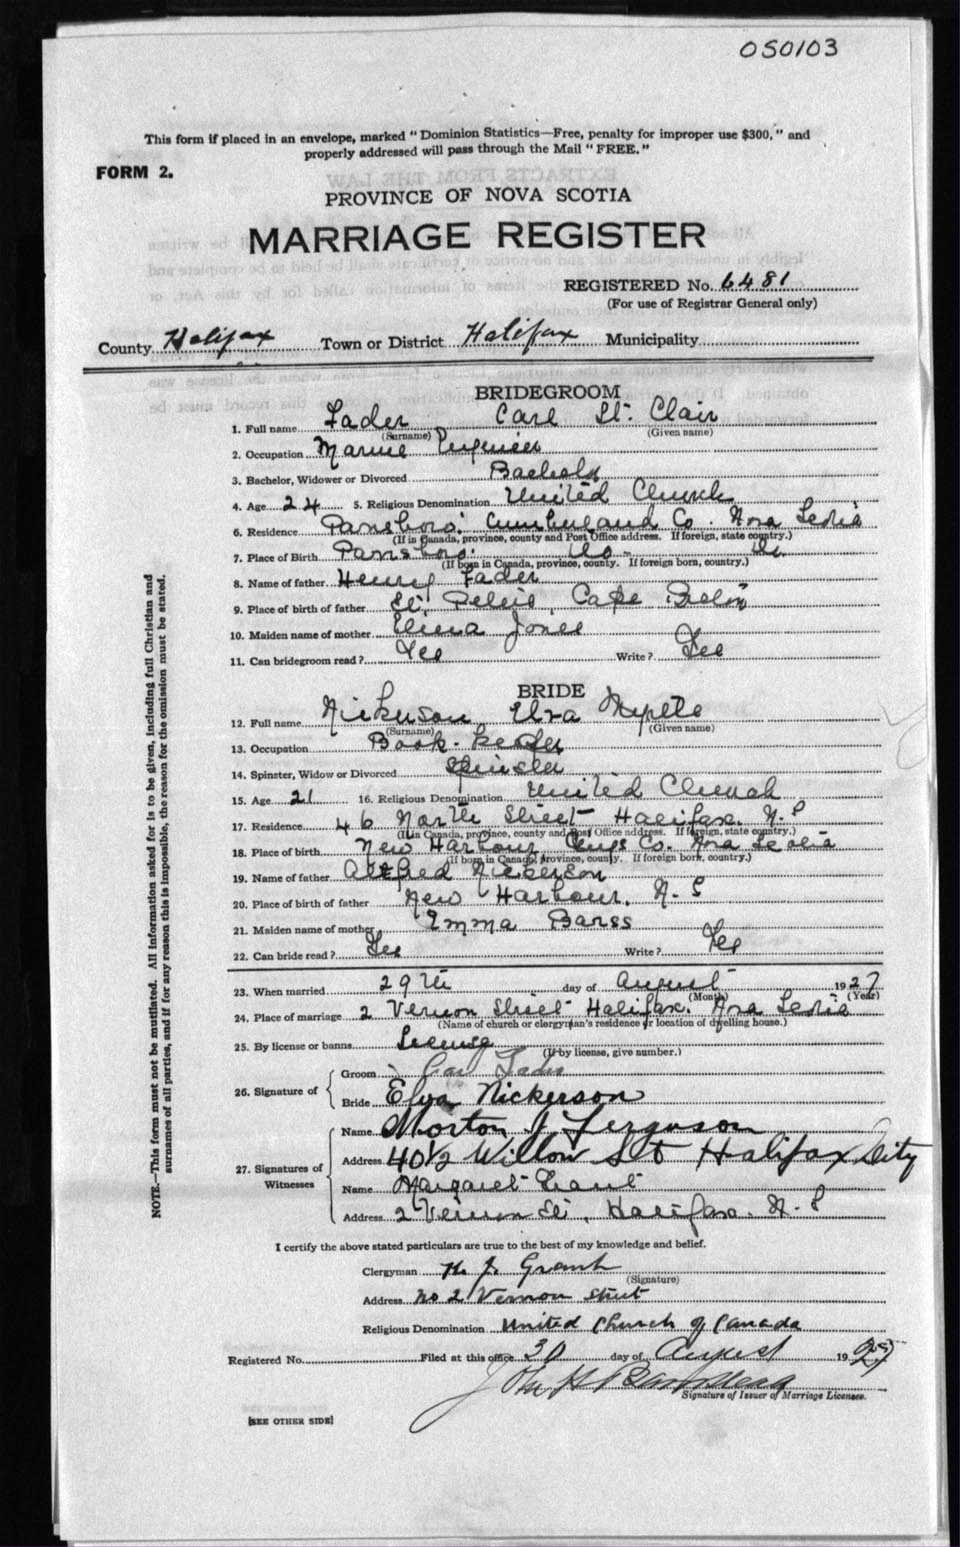 050103
This form if placed in an envelope, marked "Dominion Statistics—Free, penalty for improper use $300," and
properly addressed will pass through the Mail "FREE."
FORM 2.
PROVINCE OF NOVA SCOTIA
MARRIAGE REGISTER
REGISTERED No. 6481
(For use of Registrar General only)
County Halifax Town or District Halifax Municipality
BRIDEGROOM
1. Full name Fader Carl St. Clair
(Surname) (Given name)
2. Occupation Marine Engineer
3. Bachelor, Widower or Divorced Bachelor
4. Age 24 5. Religious Denomination United Church
6. Residence Parrsboro Cumberland Co. Nova Scotia
(If in Canada, province, county and Post Office address. If foreign, state country.)
7. Place of Birth Parrsboro Do Do
(If born in Canada, province, county. If foreign born, country.)
8. Name of father Henry Fader
9. Place of birth of father St. Cape Breton
10. Maiden name of mother Jones
11. Can bridegroom read? Yes Write? Yes
BRIDE
12. Full name Nickerson Elva Myrtle
(Surname) (Given name)
13. Occupation Book-keeper
14. Spinster, Widow or Divorced Spinster
15. Age 21 16. Religious Denomination United Church
17. Residence 46 North Street Halifax. N.S
(If in Canada, province, county and Post Office address. If foreign, state country.)
18. Place of birth New Harbour Guys Co. Nova Scotia
(If born in Canada, province, county. If foreign born, country.)
19. Name of father Alfred Nickerson
20. Place of birth of father New Harbour. N.S
21. Maiden name of mother Emma Barss
22. Can bride read? Yes Write? Yes
23. When married 29th day of August 1927
(Month) (Year)
24. Place of marriage 2 Vernon Street Halifax. Nova Scotia
(Name of church or clergyman's residence or location of dwelling house.)
25. By license or banns License
(If by license, give number.)
26. Signature of
Groom Carl Fader
Bride Elva Nickerson
27. Signatures of Witnesses
Name Morton J Ferguson
Address 40 1/2 Willow St Halifax City
Name Margaret Grant
Address 2 Vernon St, Halifax. N.S
I certify the above stated particulars are true to the best of my knowledge and belief.
Clergyman H. J. Grant
(Signature)
Address No 2 Vernon Street
Religious Denomination United Church of Canada
Registered No. Filed at this office 30 day of August 19
John H
Signature of Issuer of Marriage Licenses.
[SEE OTHER SIDE]
NOTE.—This form must not be mutilated. All information asked for is to be given, including full Christian and
surnames of all parties, and if for any reason this is impossible, the reason for the omission must be stated.